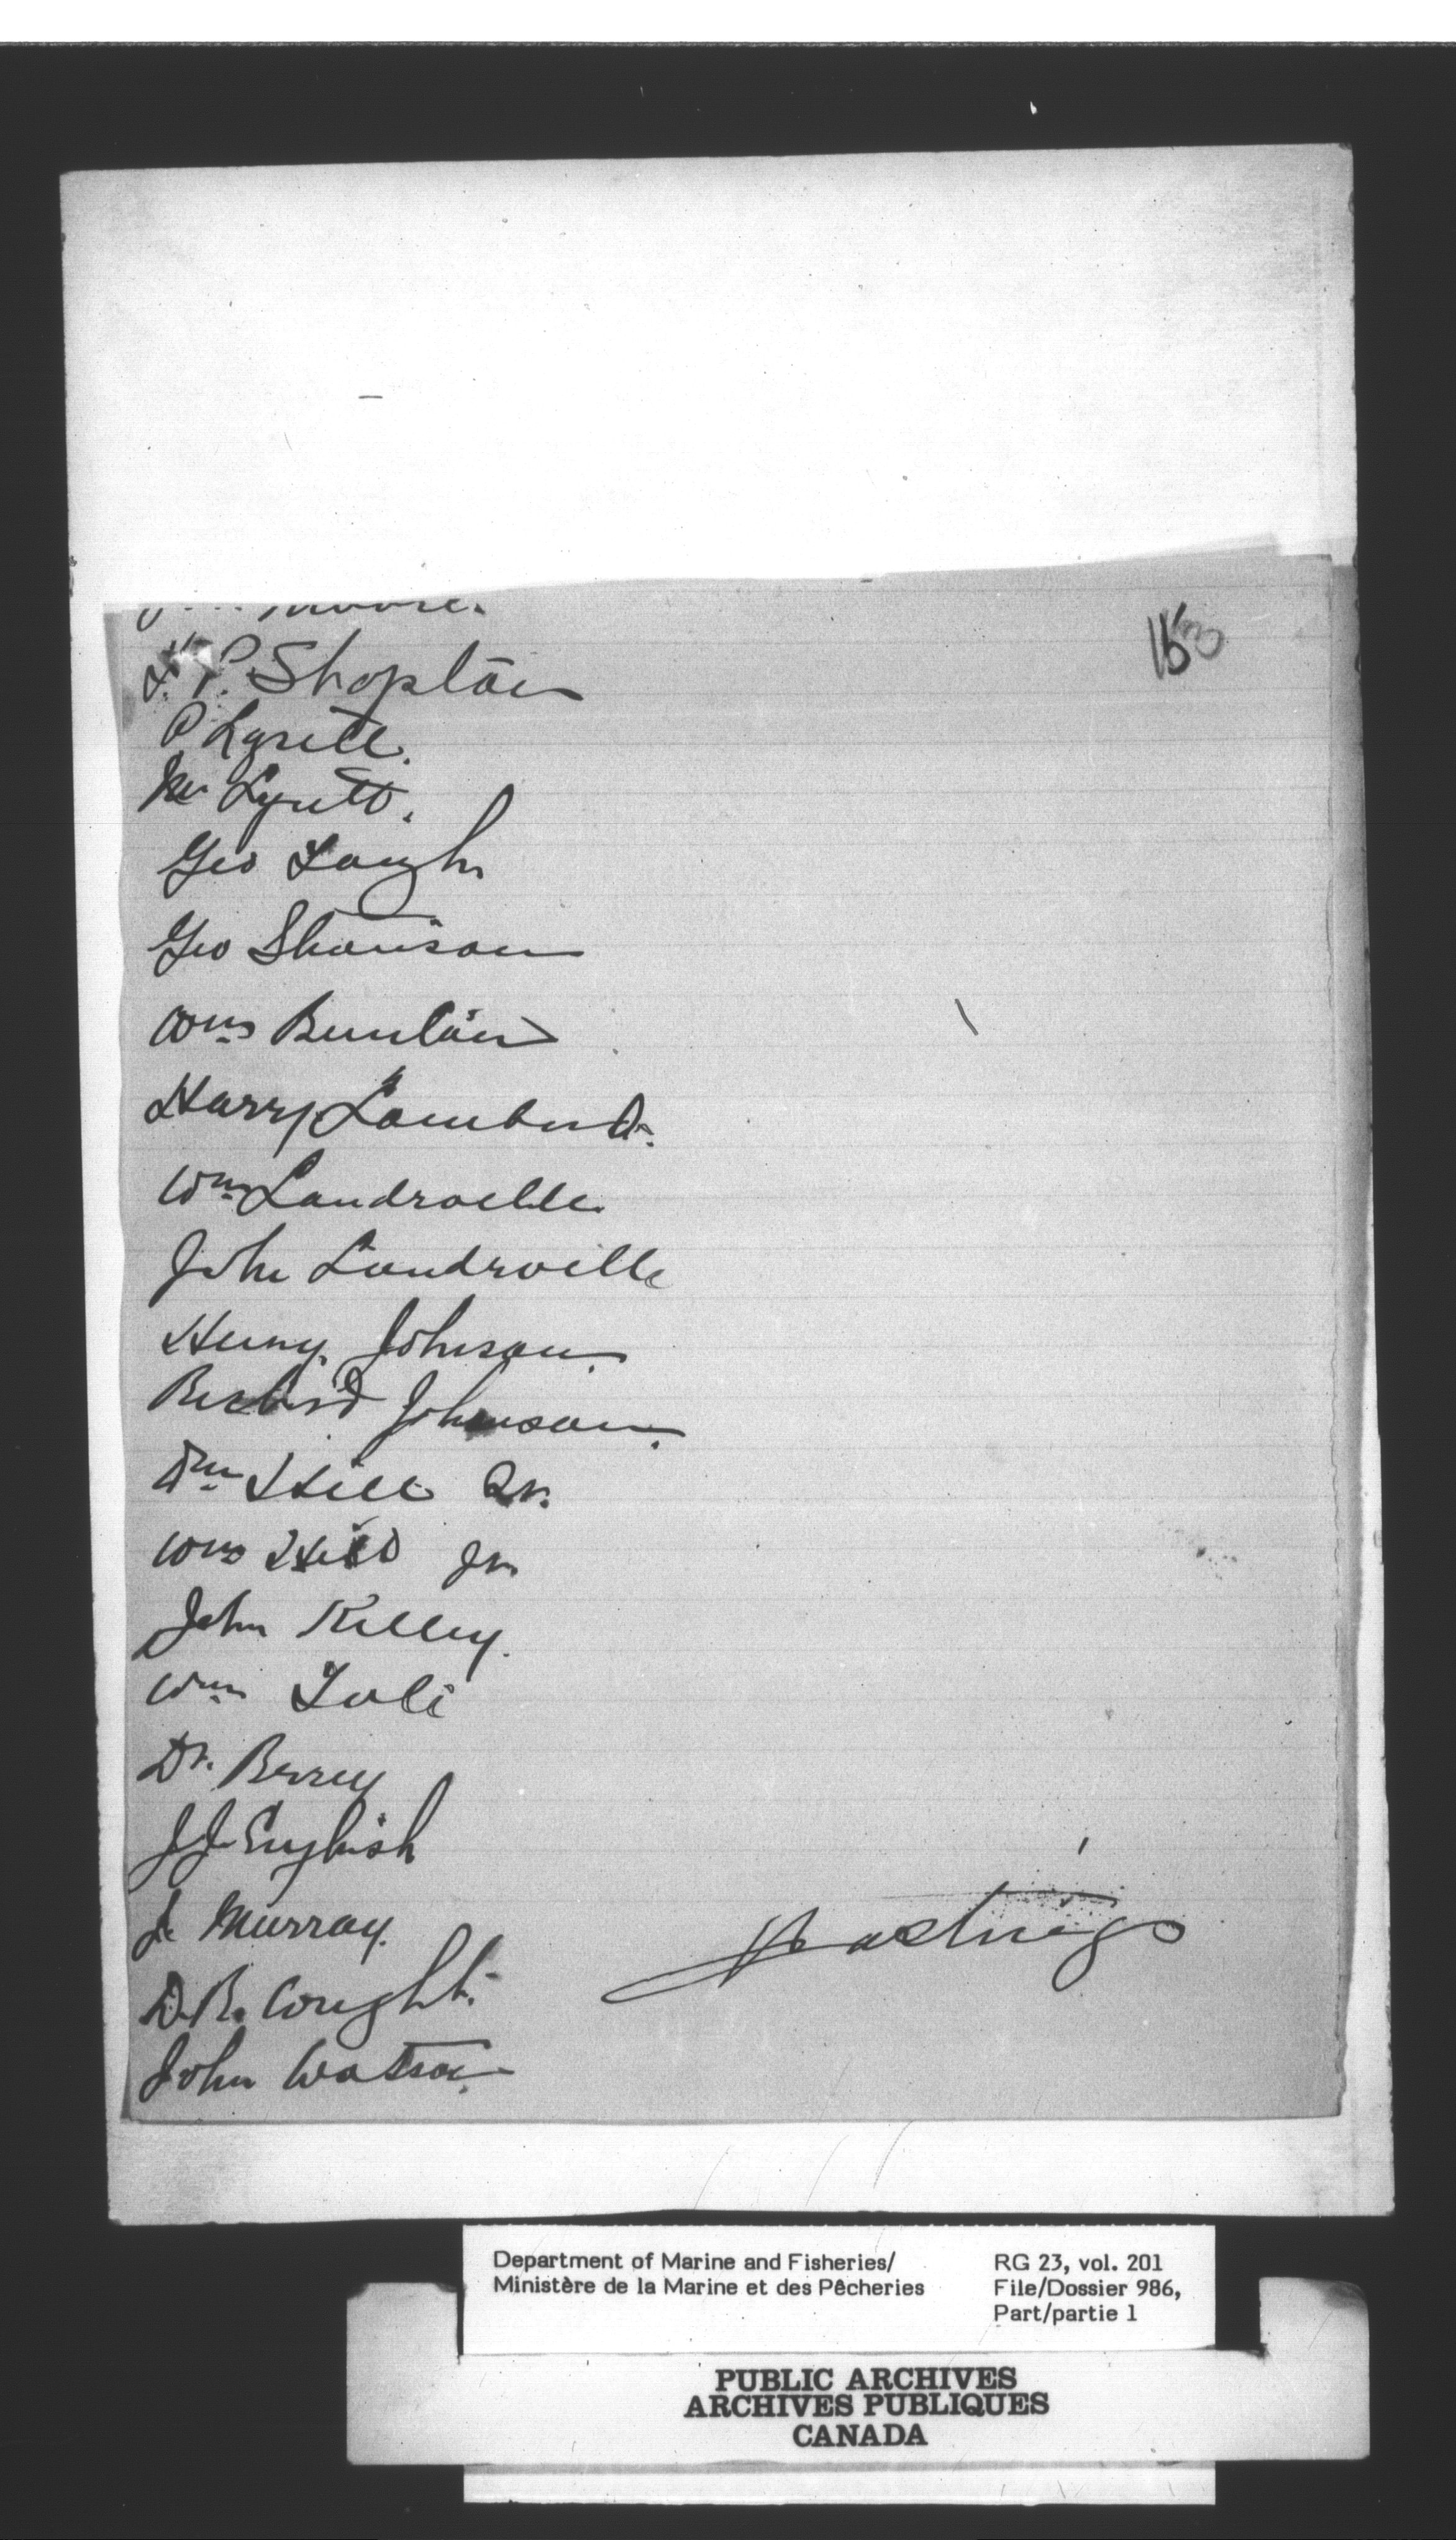 Moore.
P. Shoplain
P Lyrett.
Lyrett.
Geo Laugh
Geo Shanison
Wm Bunlain
Harry Lambert.
Wm Landroville.
John Landroville
Henry Johnson.
Johnson.
Wm Hill Sr.
Wm Hill Jr.
John Kelley.
Wm
Dr. Berry
J J English
J. Murray.
D. R. Wright.
Hastings
John Watson.
Department of Marine and Fisheries/
Ministère de la Marine et des Pêcheries
RG 23, vol. 201
File/Dossier 986,
Part/partie 1
PUBLIC ARCHIVES
ARCHIVES PUBLIQUES
CANADA